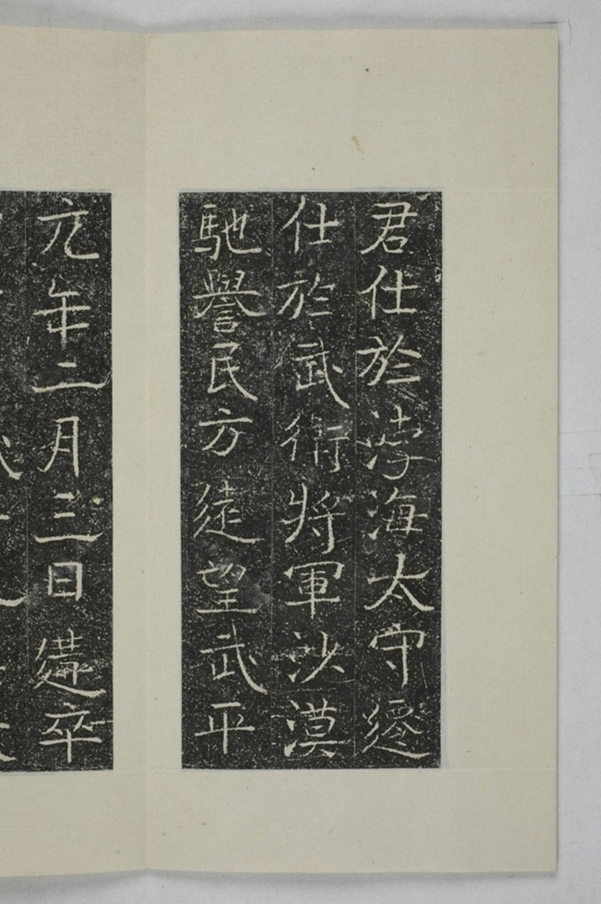 君仕於浡海太守遷
仕於武衛將軍沙漠
馳譽民方徒望武平
元年二月三日卒